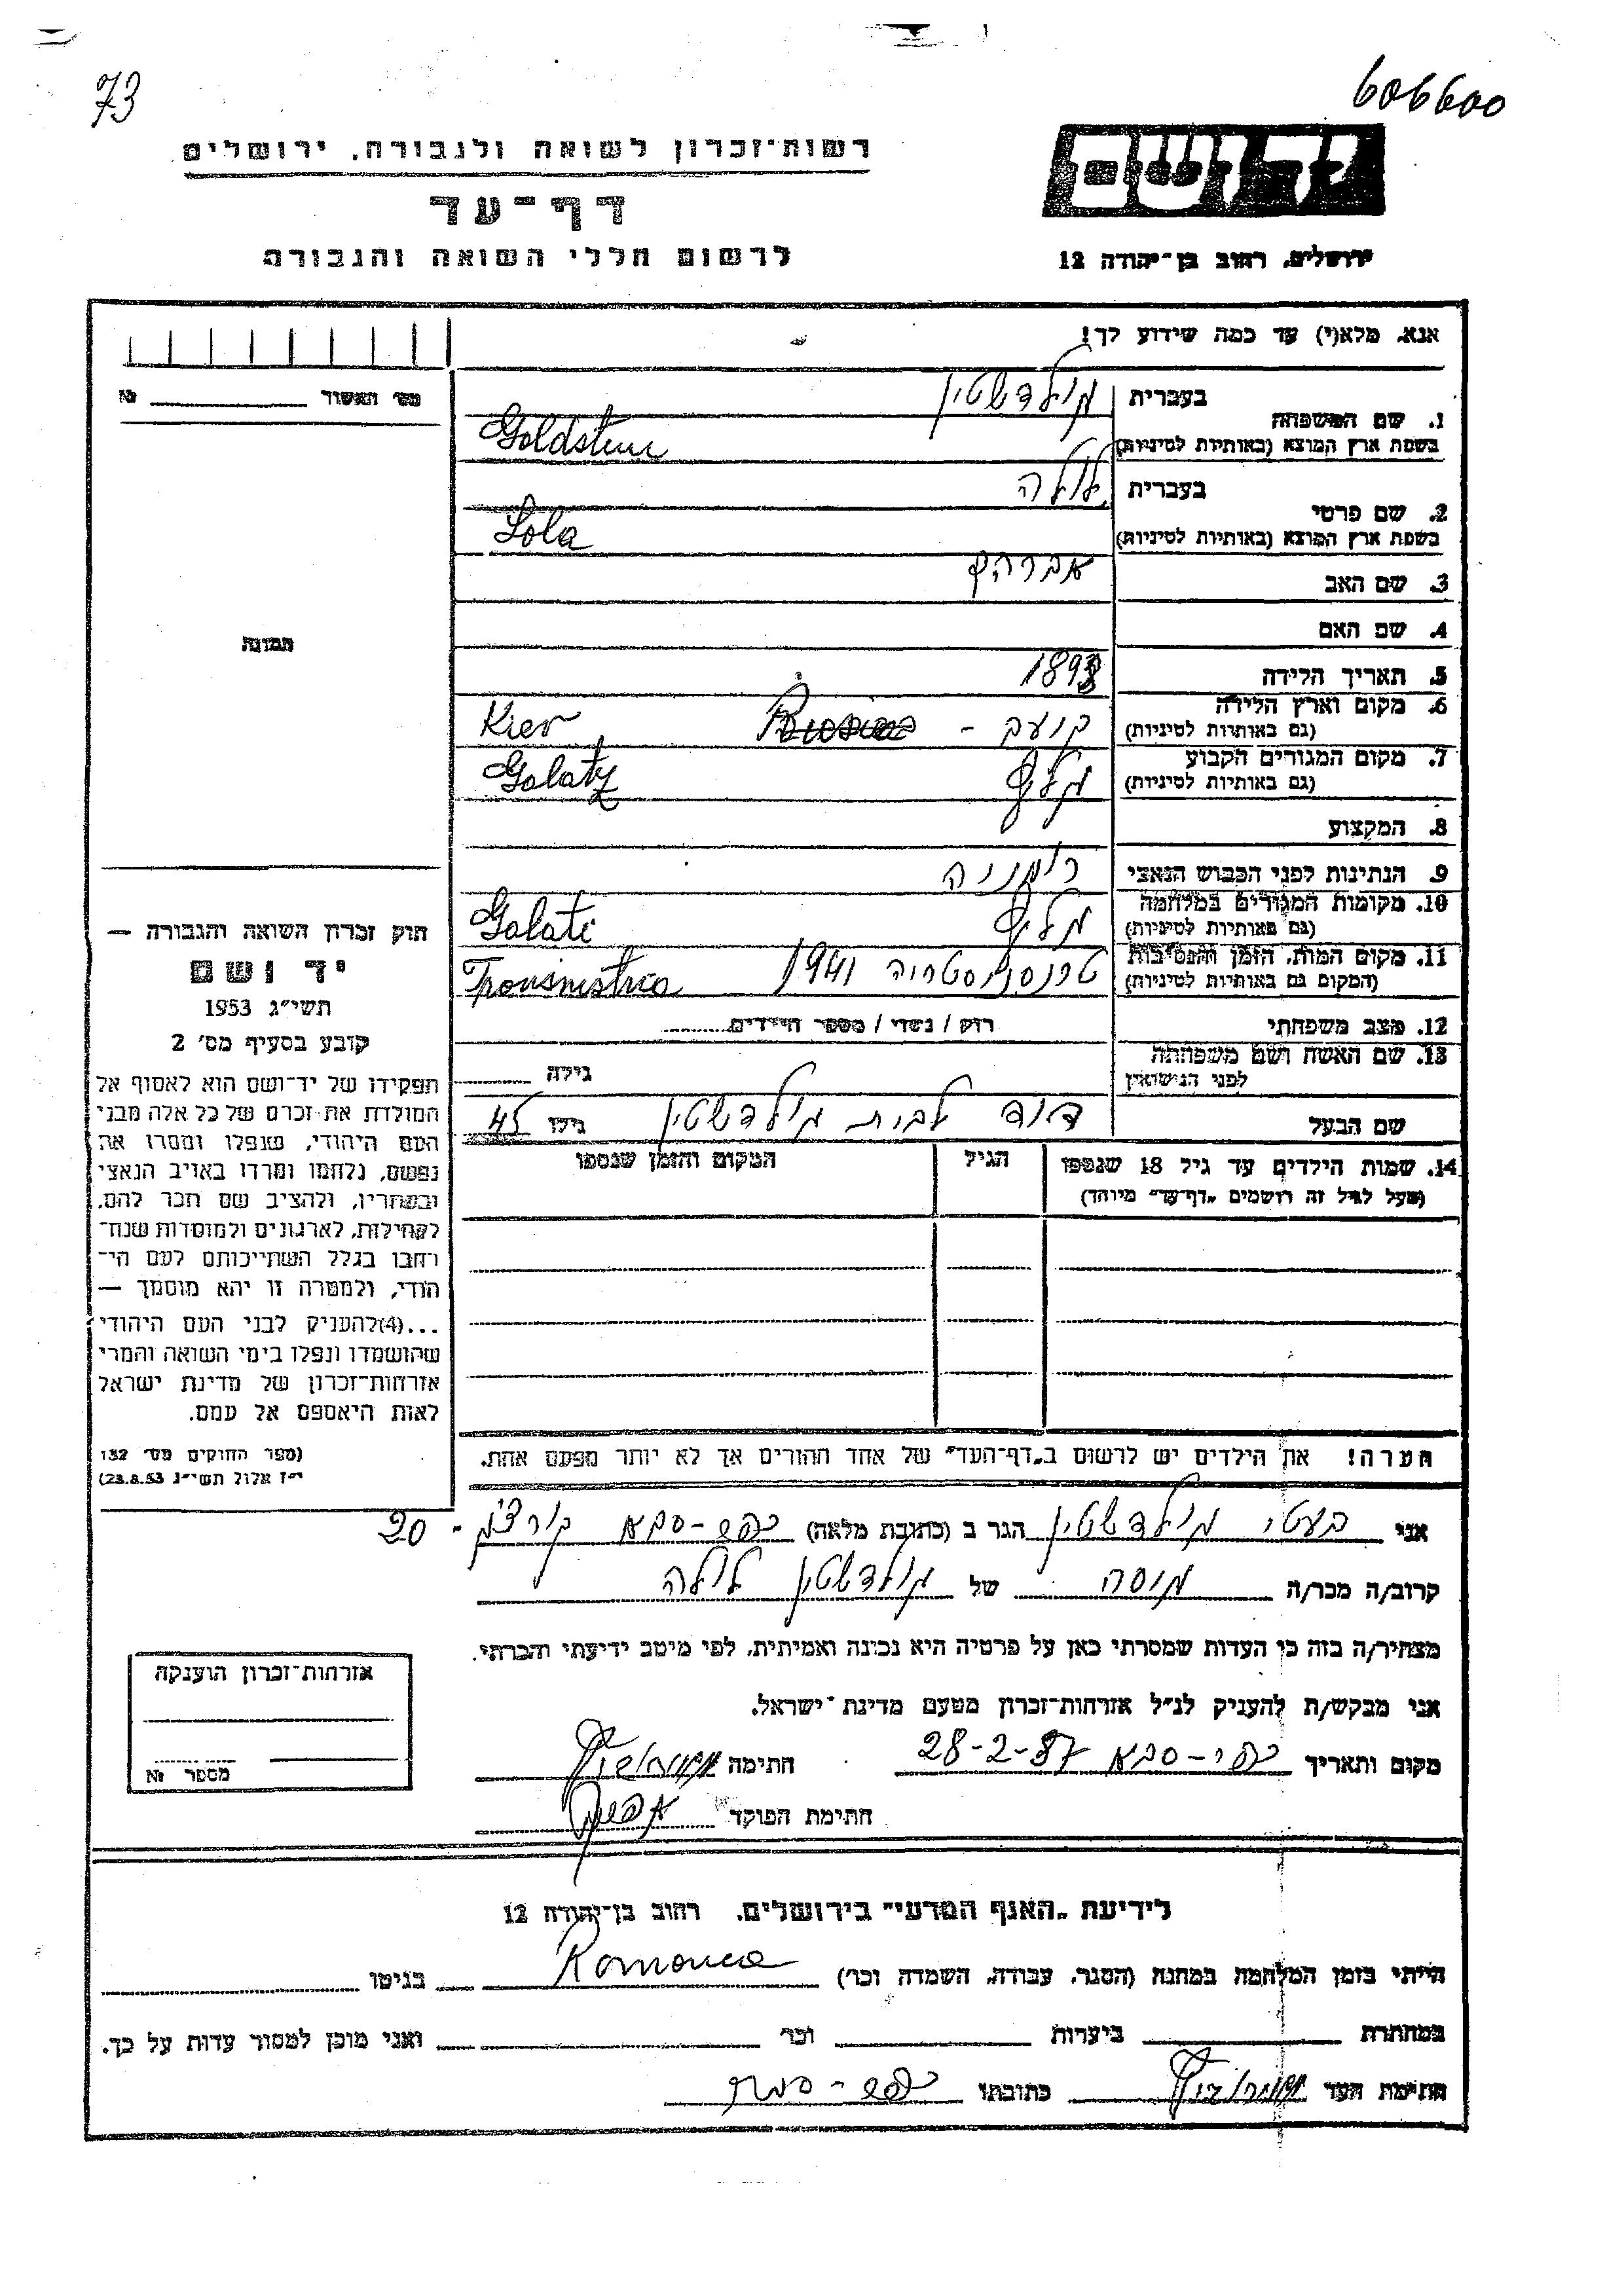 73
606600
רשות־זכרון לשואה ולגבורה, ירושלים
דף־עד
לרשום חללי השואה והגבורה
יד ושם
ירושלים, רחוב בן־יהודה 12
אנא, מלא(י) עד כמה שידוע לך!
מס׳ האשור № 
תמונה
חוק זכרון השואה והגבורה —
יד ושם
תשי״ג 1953
קובע בסעיף מס׳ 2
תפקידו של יד־ושם הוא לאסוף אל
המולדת את זכרם של כל אלה מבני
העם היהודי, שנפלו ומסרו את
נפשם, נלחמו ומרדו באויב הנאצי
ובעוזריו, ולהציב שם וזכר להם,
לקהילות, לארגונים ולמוסדות שנח־
רבו בגלל השתייכותם לעם הי־
הודי, ולמטרה זו יהא מוסמך —
...(4)להעניק לבני העם היהודי
שהושמדו ונפלו בימי השואה והמרי
אזרחות־זכרון של מדינת ישראל
לאות היאספם אל עמם.
(ספר החוקים מס׳ 132
י״ז אלול תשי״ג 28.8.53)
1. שם המשפחה בעברית גולדשטין
בשפת ארץ המוצא (באותיות לטיניות) Goldstein
2. שם פרטי בעברית לולה
בשפת ארץ המוצא (באותיות לטיניות) Lola
3. שם האב אברהם
4. שם האם
5. תאריך הלידה 1898
6. מקום וארץ הלידה
(גם באותיות לטיניות) Kiev
7. מקום המגורים הקבוע גלץ
(גם באותיות לטיניות) Galatz
8. המקצוע
9. הנתינות לפני הכבוש הנאצי רומניה
10. מקומות המגורים במלחמה גלץ
(גם באותיות לטיניות) Galati
11. מקום המות, הזמן והנסיבות טרנסניסטריה 1941
(המקום גם באותיות לטיניות) Transnistrea
12. מצב משפחתי רוק / נשוי / מספר הילדים
13. שם האשה ושם משפחתה
לפני הנישואין גילה
שם הבעל דוד לבית גולדשטין גילו 45
14. שמות הילדים עד גיל 18 שנספו הגיל המקום והזמן שנספו
(מעל לגיל זה רושמים „דף־עד״ מיוחד)
הערה! את הילדים יש לרשום ב„דף־העד״ של אחד ההורים אך לא יותר מפעם אחת.
אני בטי גולדשטין הגר ב (כתובת מלאה) כפר-סבא 20
קרוב/ה מכר/ה גיסה של גולדשטין לולה
מצהיר/ה בזה כי העדות שמסרתי כאן על פרטיה היא נכונה ואמיתית, לפי מיטב ידיעתי והכרתי.
אני מבקש/ת להעניק לנ״ל אזרחות־זכרון מטעם מדינת־ישראל.
מקום ותאריך כפר-סבא 28-2-57 חתימה
חתימת הפוקד
אזרחות־זכרון הוענקה
מספר №
לידיעת „האגף המדעי״ בירושלים, רחוב בן־יהודה 12
הייתי בזמן המלחמה במחנה (הסגר, עבודה, השמדה וכר׳) Romania בגיטו
במחתרת ביערות וכר׳ ואני מוכן למסור עדות על כך.
חתימת העד כתובתו